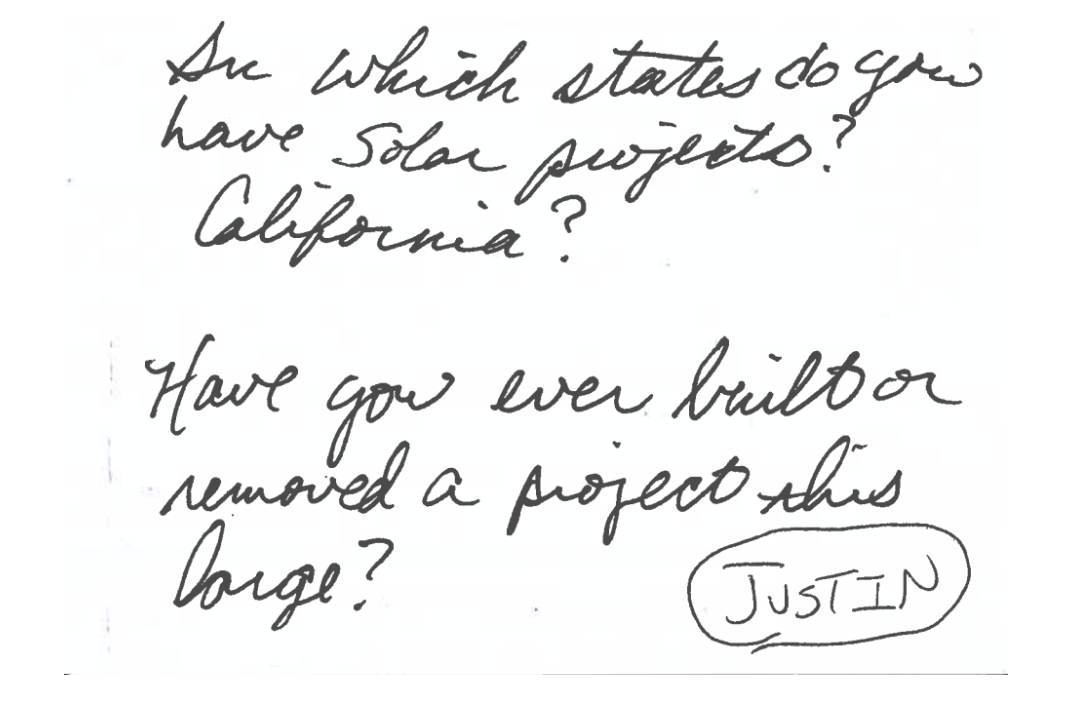 In which states do you
have Solar projects?
California?
Have you ever built or
removed a project this
large?
JUSTIN